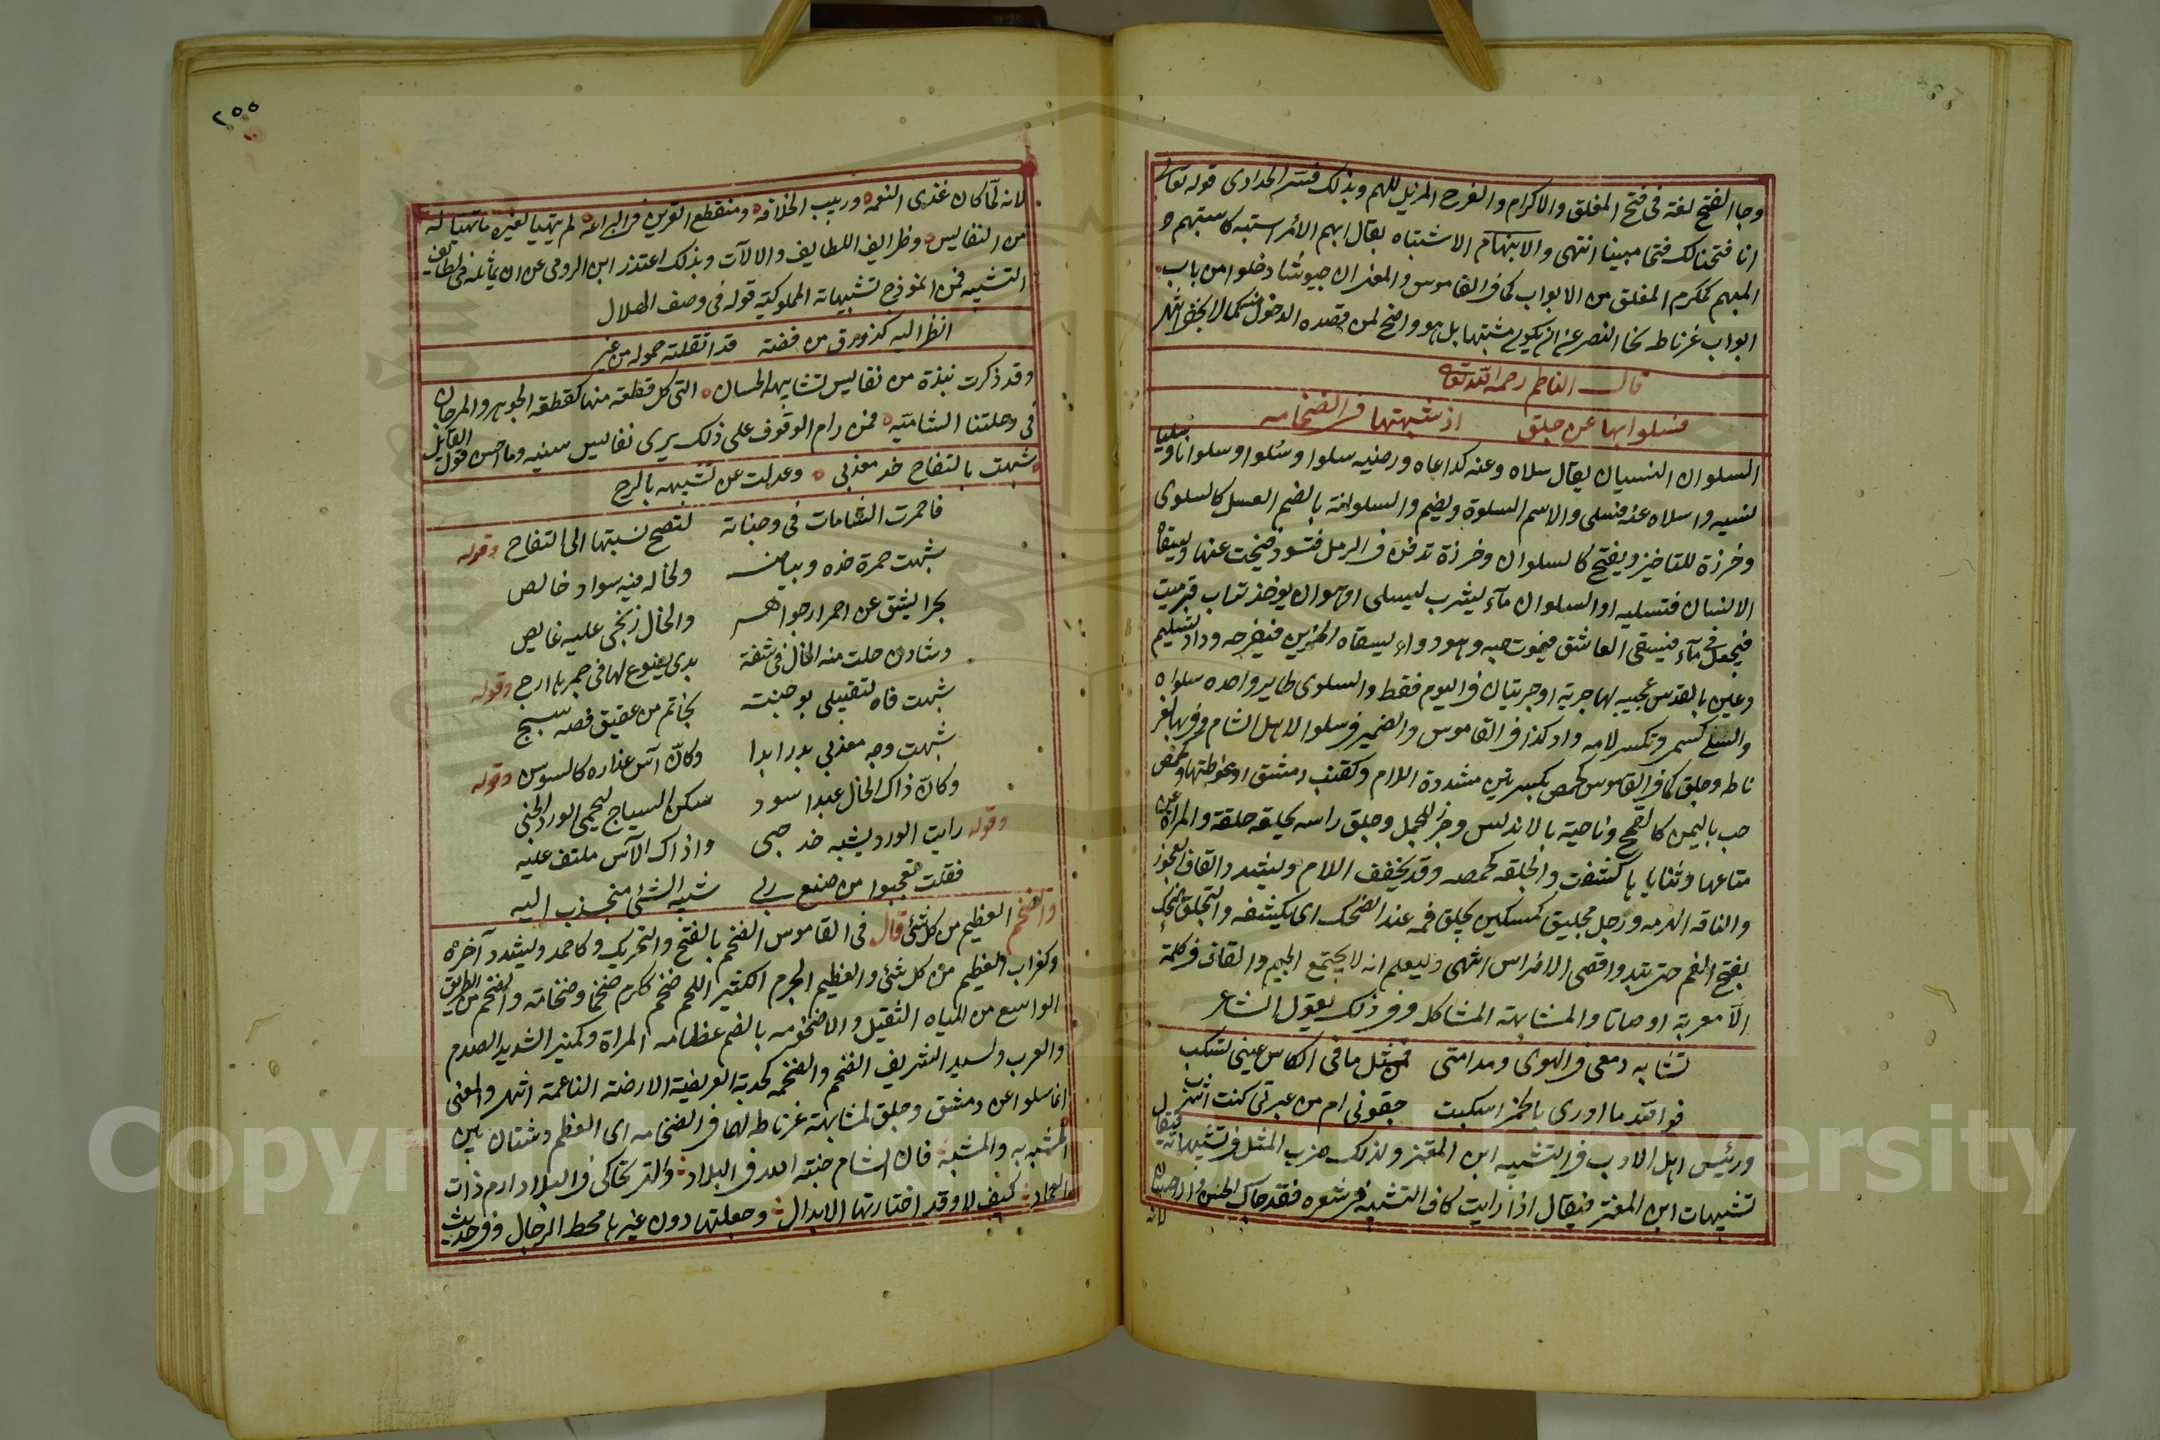 وجا الفتح لغة فى فتح المغلق والاكرام والفرح المزيل للهم وبذلك فسر الحدادى قوله تعالى
انا فتحنا لك فتحا مبينا انتهى والابتهام الاشتباه يقال ابهم الأمر اشتبه كاستبهم و
المبهم كمكرم المغلق من الابواب كما فى القاموس والمعنى ان جيوشنا دخلوا من باب
ابواب غرناطه نحا النصر عن ان يكون مشتبها بل هو واضح لمن قصده الدخول كما لا يخفى انتهى
قال الناظم رحمه الله تعالى
فسلوا بها عن جلق اذ شبهتها فى الضخامه
السلوان النسيان يقال سلاه وعنه كدعاه ورضيه سلوا وسُلوا وسلوانا وسليا
نسيه واسلاه عنه فتسلى والاسم السلوة ويضم والسلوانة بالضم العسل كالسلوى
وخرزة للتاخيذ ويفتح كالسلوان وخرزة تدفن فى الرمل فتسود فيبحث عنها ويسقاها
الانسان فتسليه او السلوان مآء يشرب ليسلى او هو ان يوخذ تراب قبر ميت
فيجعل فى مآء فيسقى العاشق فيموت حبه وهو دواء يسقاه الحزين فيفرحه وواد لسليم
وعين بالقدس عجيبه لها جرية او جريتان فى اليوم فقط والسلوى طاير واحده سلواه
والسلى كسمى وتكسر لامه واد كذا فى القاموس والضمير فى سلوا لاهل الشام وفى بها لغر
ناطه وجلق كما فى القاموس كحمص بكسرتين مشددة اللام وكقنب دمشق او غوطتها وكحمص
حب باليمن كالقمح وناحية بالاندلس وجلق راسه يجلقه حلقه والمراة عن
متاعها وثنايا ها كشفت والجلقه كحمصه وقد يخفف اللام ويشدد القاف العجوز
والناقه الهرمه ورجل مجليق كمسكين يجلق فمه عند الضحك اى يكشفه والتجلق الضحك
بفتح الفم حتى يبدو اقصى الاضراس انتهى وليعلم انه لا يجتمع الجيم والقاف فى كلمة
الا معربة او صاتا والمشابهته المشاكله وفى ذلك يقول الشاعر
تشابه دمعى فى الهوى ومدامتى فمن مثل ما فى الكاس عينى تسكب
فوالله ما ادرى بالخمر اسبلت جفونى ام من عبرتى كنت اشرب
ورئيس اهل الادب فى التشبيه ابن المعتز ولذلك ضرب المثل فى تشبيهاته فيقال
تشبيهات ابن المعتز فيقال اذا رايت كاف التشبيه فى شعره فقد جاك الحسن
لانه
٢٥٥
لانه لمّا كان غذى النعمه وربيب الخلافه ومنقطع القرين فى البراعه لم يتهيا لغيره ما تهيا له
من النفايس وظرايف اللطايف والالآت وبذلك اعتذر ابن الرومى عن ان يماثله فى لطايف
التشبيه فمن انموذج تشبيهاته الملوكية قوله فى وصف الهلال
انظر اليه كزورق من فضة قد اثقلته حموله من عنبر
وقد ذكرت نبذة من نفايس تشابيهه الحسان التى كل قطعه منها كقطعه الجوهر والمرجان
فى رحلتنا الشاميه فمن رام الوقوف على ذلك يرى نفايس سنيه وما احسن قول القايل
شبهت بالتفاح خد معذبى وعدلت عن تشبيهه بالراح
فاحمرت الشامات فى وجناته لتصح نسبتها الى التفاح وقوله
شبهت حمرة خده وبياضه ولخاله فيه سواد خالص
بحرا يشق عن احمرار جواهر والخال زنجى عليه غايص
وشادن حلت منه الخال فى شفة بدى يضوع لها فى جمر ها ارج وقوله
شبهت فاه لتقبيلى بوجنته بخاتم من عقيق فصه سبج
شبهت وجه معذبى بدرا بدا وكانّ آس عذاره كالسوسن وقوله
وكانّ ذاك الخال عبد اسود سكن السياج ليحمى الورد الجنى
وقوله رايت الورد يشبه خد حبى واذاك الآس ملتف عليه
فقلت تعجبوا من صنع ربى شبيه الشئ منجذب اليه
والضخم العظيم من كل شئ قال فى القاموس الضخم بالفتح والتحريك وكاحمد ويشدد آخره
وكغراب العظيم من كل شئ والعظيم الجرم الكثير اللحم ضخم ككرم ضخما وضخامة والضخم من الطريق
الواسع من المياه الثقيل والاضخومه بالضم عظامه المراة وكمنبر الشديد الصدم
والضرب والسيد الشريف الضخم والضخمه كخدبة العريضة الارضة الناعمة انتهى والمعنى
انما سلوا عن دمشق وجلق لمشابهته غرناطه لهما فى الضخامه اى العظم وشتان بين
المشبه به والمشبه فان الشام جنته الله فى البلاد والتى تحاكى فى البلاد ارم ذات
العماد كيف لا وقد اختارتها الابدال وجعلتها دون غيرها محط الرحال وفى حديث